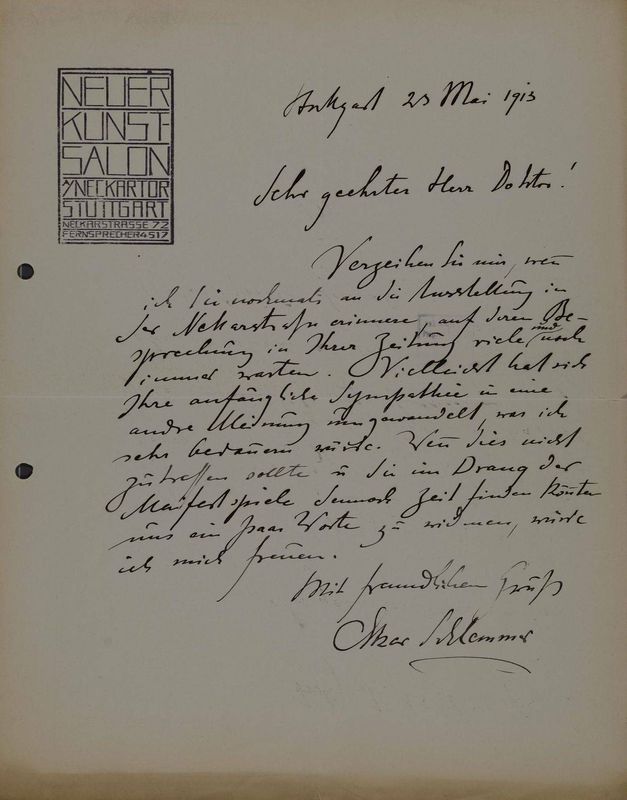 NEUER
KUNST-
SALON
A/NECKARTOR
STUTTGART
NECKARSTRASSE 72
FERNSPRECHER 4517
Stuttgart 23 Mai 1913
Sehr geehrter Herr Doktor!
Verzeihen Sie mir, wen
ich Sie nochmals an die Ausstellung in
der Neckarstraße erinnere, auf deren Be-
sprechung in Ihrer Zeitung viele und noch
immer warten. Vielleicht hat sich
Ihre anfängliche Sympathie in eine
andre Meinung umgewandelt, was ich
sehr bedauern würde. Wen dies nicht
zutreffen sollte u Sie im Drang der
Maifestspiele dennoch Zeit finden könten
uns ein paar Worte zu widmen, würde
ich mich freuen.
Mit freundlichem Gruß
Oskar Schlemmer